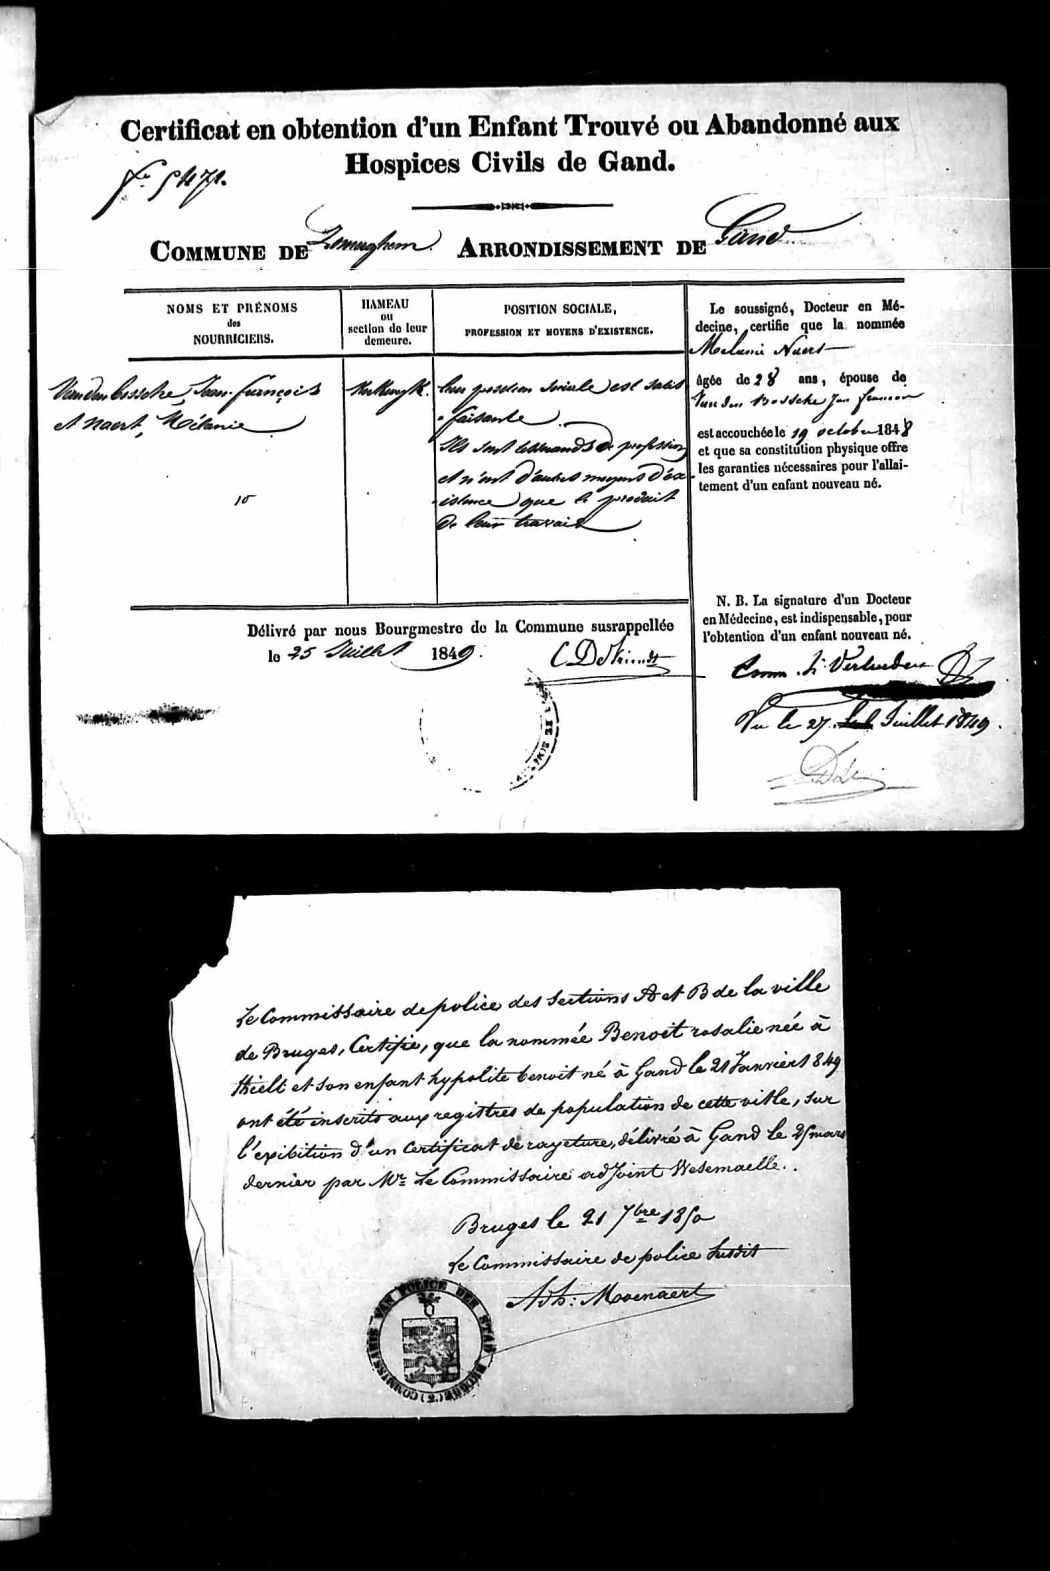 Certificat en obtention d'un Enfant Trouvé ou Abandonné aux
Hospices Civils de Gand.
COMMUNE DE ARRONDISSEMENT DE Gand
NOMS ET PRÉNOMS
des
NOURRICIERS.
HAMEAU
ou
section de leur
demeure.
POSITION SOCIALE,
PROFESSION ET MOYENS D'EXISTENCE.
Vanden bossche, Jean françois
et Naert, Mélanie
10
leur position sociale est satis
faisante
Ils sont tisserands de profession
et n'ont d'autres moyens d'éx-
istence que le produit
de leur travail
Le soussigné, Docteur en Mé-
decine, certifie que la nommée
Melanie Naert
âgée de 28 ans, épouse de
Van den Bossche Jan francois
est accouchée le 19 octobre 1848
et que sa constitution physique offre
les garanties nécessaires pour l'allai-
tement d'un enfant nouveau né.
N. B. La signature d'un Docteur
en Médecine, est indispensable, pour
l'obtention d'un enfant nouveau né.
Vu le 27 Juillet 1849.
Délivré par nous Bourgmestre de la Commune susrappellée
le 25 Juillet 1849.
Le Commissaire de police des sections A et B de la ville
de Bruges, Certifie, que la nommée Benoit rosalie née à
thielt et son enfant hypolite benoit né à Gand le 21 Janvier 1849
ont été inscrits aux registres de population de cette ville, sur
l'exibition d'un certificat de rayeture, délivré à Gand le 25 mars
dernier par Mr. Le Commissaire adjoint Wesemaelle.
Bruges le 21 7bre 1850
Le Commissaire de police susdit
COMMISSARIS VAN POLICIE DER STAD BRUGGE